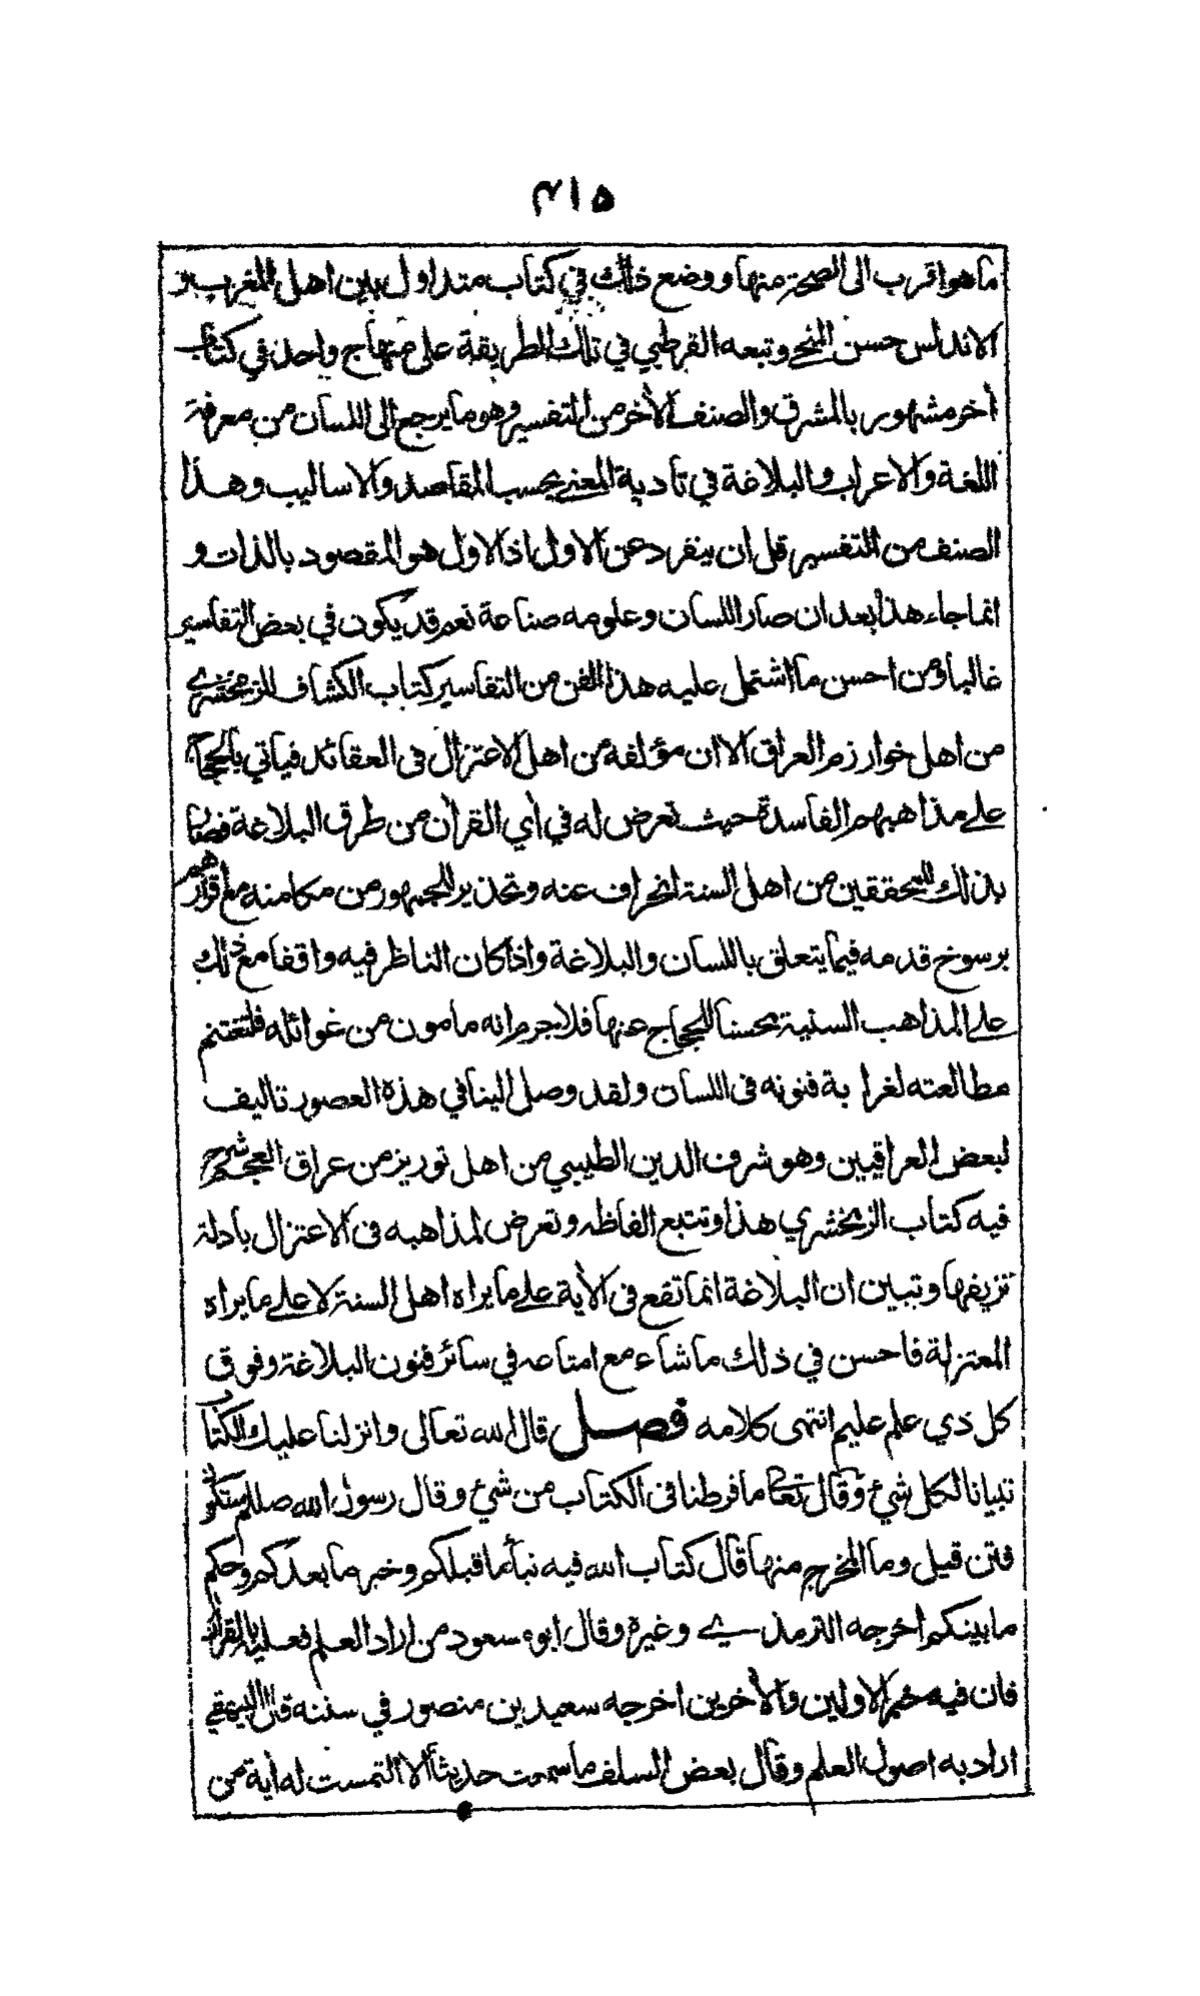 ٣١٥
ما هو اقرب الى الصحة منها ووضع ذلك في كتاب متداول بين اهل المغرب و
الاندلس حسن المنحى وتبعه القرطبي في تلك الطريقة على منهاج واحد في كتاب
أخر مشهور بالمشرق والصنف الأخر من التفسير وهو ما يرجع الى اللسان من معرفة
اللغة والاعراب والبلاغة في تأدية المعنى بحسب المقاصد والاساليب وهذا
الصنف من التفسير قل ان ينفرد عن الاول اذ الاول هو المقصود بالذات و
انما جاء هذا بعد ان صار اللسان وعلومه صناعة نعم قد يكون في بعض التفاسير
غالبا ومن احسن ما اشتمل عليه هذا الفن من التفاسير كتاب الكشاف للزمخشري
من اهل خوارزم العراق الا ان مؤلفه من اهل الاعتزال فى العقائد فياتي بالحجاج
على مذاهبهم الفاسدة حيث تعرض له في أي القرأن من طرق البلاغة فصار
بذلك للمحققين من اهل السنة انحراف عنه وتحذير للجمهور من مكامنه مع اقرارهم
برسوخ قدمه فيما يتعلق باللسان والبلاغة واذا كان الناظر فيه واقفا مع ذلك
على المذاهب السنية محسنا للحجاج عنها فلا جرم انه مامون من غوائله فلتغتنم
مطالعته لغرابة فنونه فى اللسان ولقد وصل الينا في هذه العصور تاليف
لبعض العراقيين وهو شرف الدين الطيبي من اهل توريز من عراق العجم شرح
فيه كتاب الزمخشري هذا وتتبع الفاظه وتعرض لمذاهبه فى الاعتزال بادلة
تزيفها وتبين ان البلاغة انما تقع فى الأية على ما يراه اهل السنة لا على ما يراه
المعتزلة فاحسن في ذلك ما شاء مع امتاعه في سائر فنون البلاغة وفوق
كل ذي علم عليم انتهى كلامه فصل قال الله تعالى وانزلنا عليك الكتاب
تبيانا لكل شيء وقال تعالى ما فرطنا فى الكتاب من شيء وقال رسول الله صللم ستكون
فتن قيل وما المخرج منها قال كتاب الله فيه نبأ ما قبلكم وخبر ما بعدكم وحكم
ما بينكم اخرجه الترمذي وغيره وقال ابو مسعود من اراد العلم فعليه بالقرأن
فان فيه خبر الاولين والأخرين اخرجه سعيد بن منصور في سننه قال البيهقي
اراد به اصول العلم وقال بعض السلف ما سمعت حديثا الا التمست له أية من